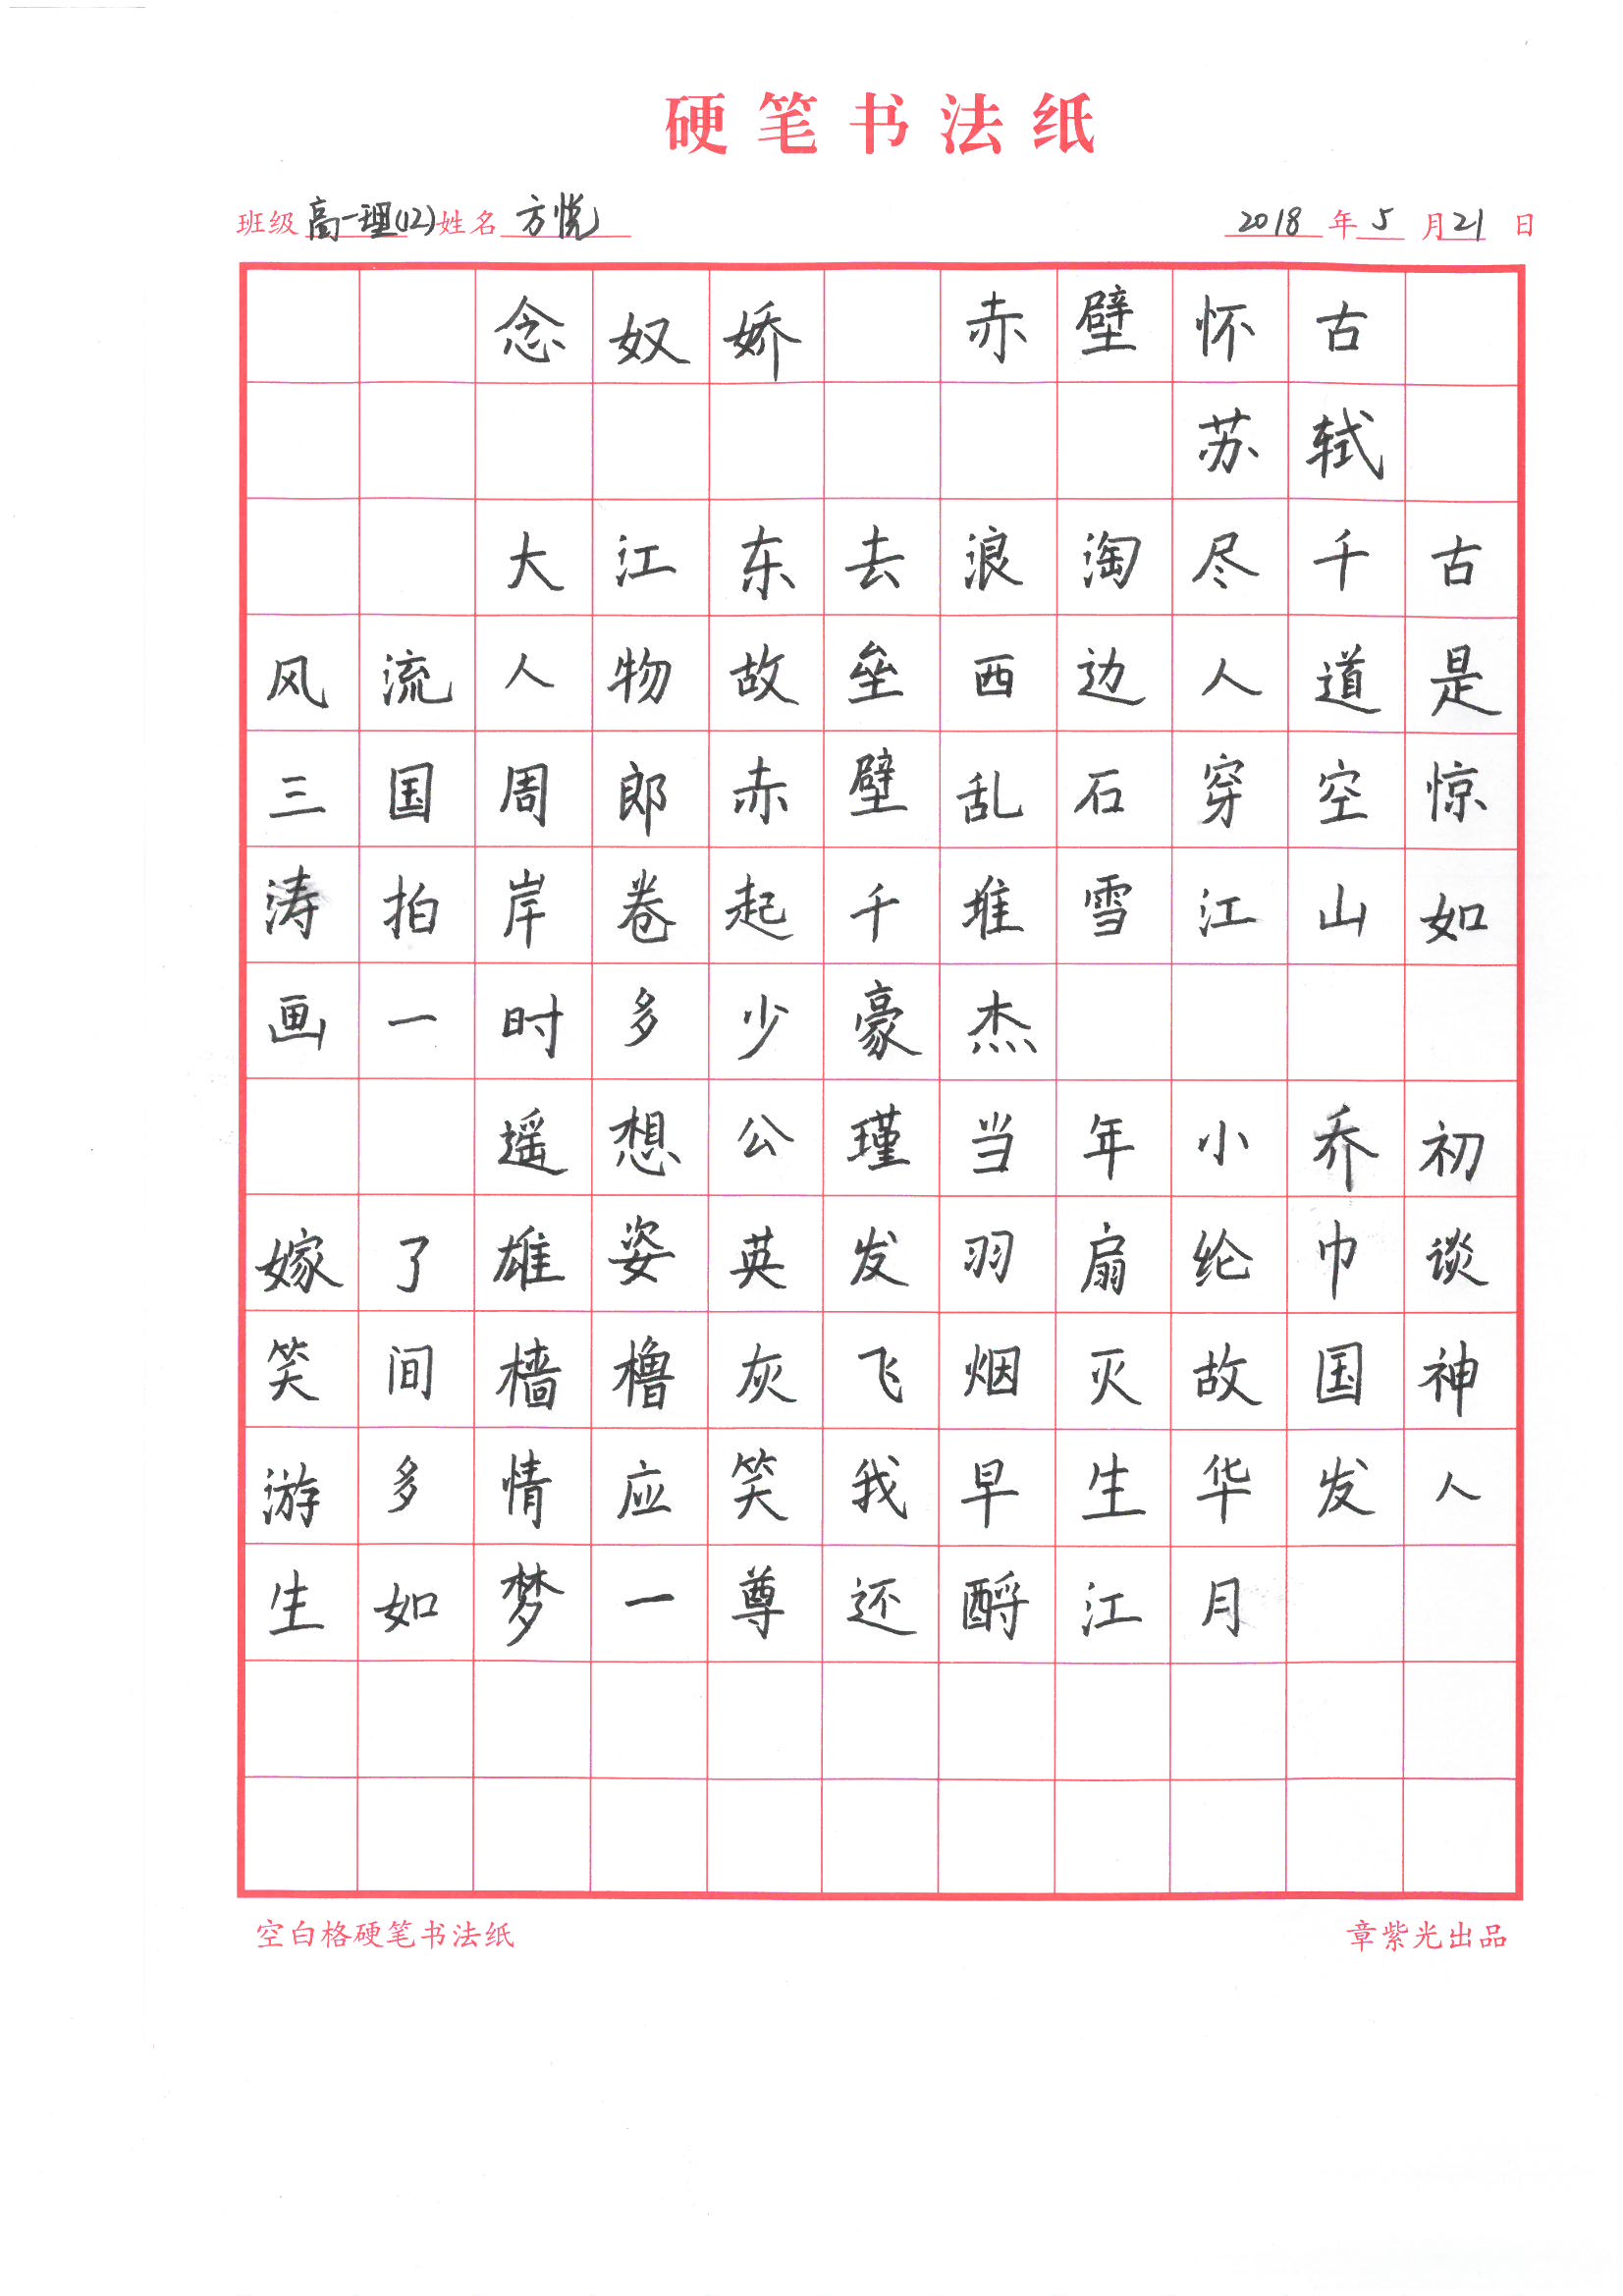 硬笔书法纸
班级 高一理(12) 姓名 方悦 2018 年 5 月 21 日
念奴娇 赤壁怀古
苏轼
大江东去浪淘尽千古
风流人物故垒西边人道是
三国周郎赤壁乱石穿空惊
涛拍岸卷起千堆雪江山如
画一时多少豪杰
遥想公瑾当年小乔初
嫁了雄姿英发羽扇纶巾谈
笑间樯橹灰飞烟灭故国神
游多情应笑我早生华发人
生如梦一尊还酹江月
空白格硬笔书法纸 章紫光出品